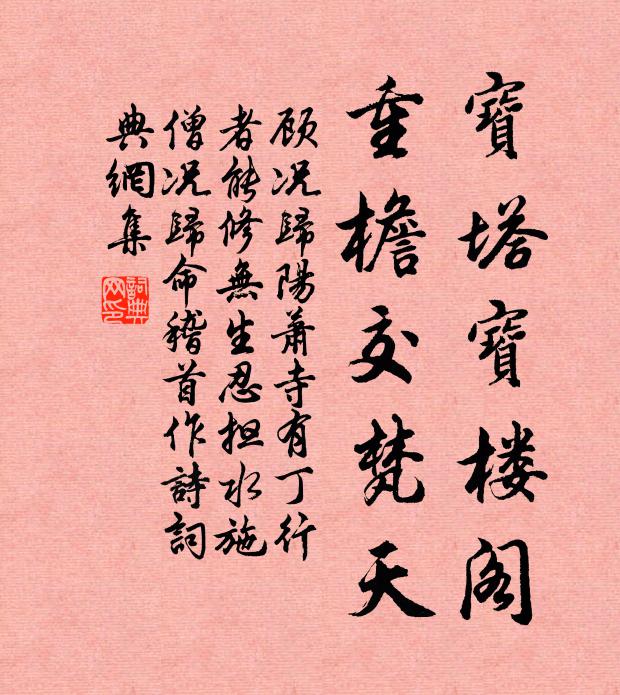 寶塔寶楼阁
重檐交梵天
顾况歸陽蕭寺有丁行
者能修無生忍担水施
僧况歸命稽首作詩詞
典網集
詞典網印